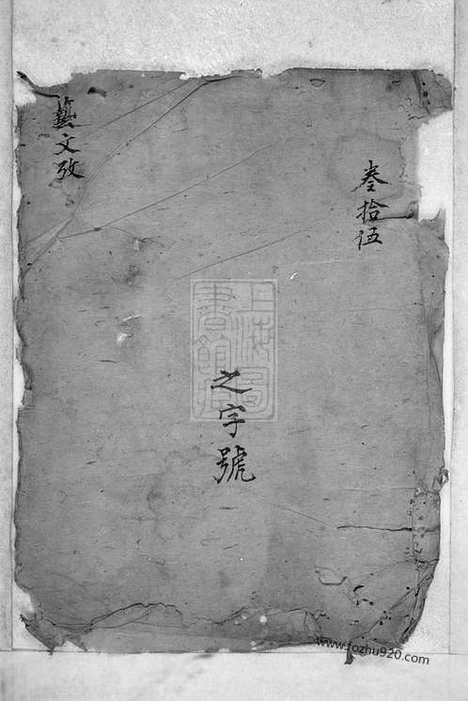 叁拾伍
藝文攷
之字號
上海圖書館藏
www.fozhu920.com